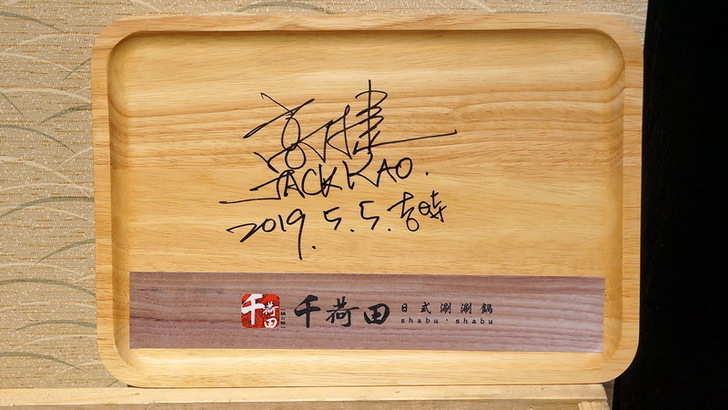 高捷
JACK KAO.
2019.5.5.吉時
千荷田
千荷田 日式涮涮鍋
shabu·shabu